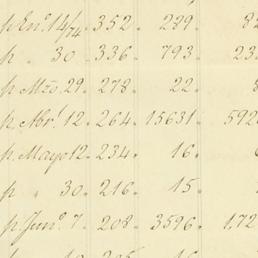 p En.º 14/74 .. 352. 289. 8
p " 30 .. 336. 793. 23
p Mzo. 29. 278. 22. 8
p Abr.l 12. 264. 15631. 592
p Mayo 12. 234. 16.
p " 30. 216. 15.
p Jun.º 7. 208. 3596. 1,72